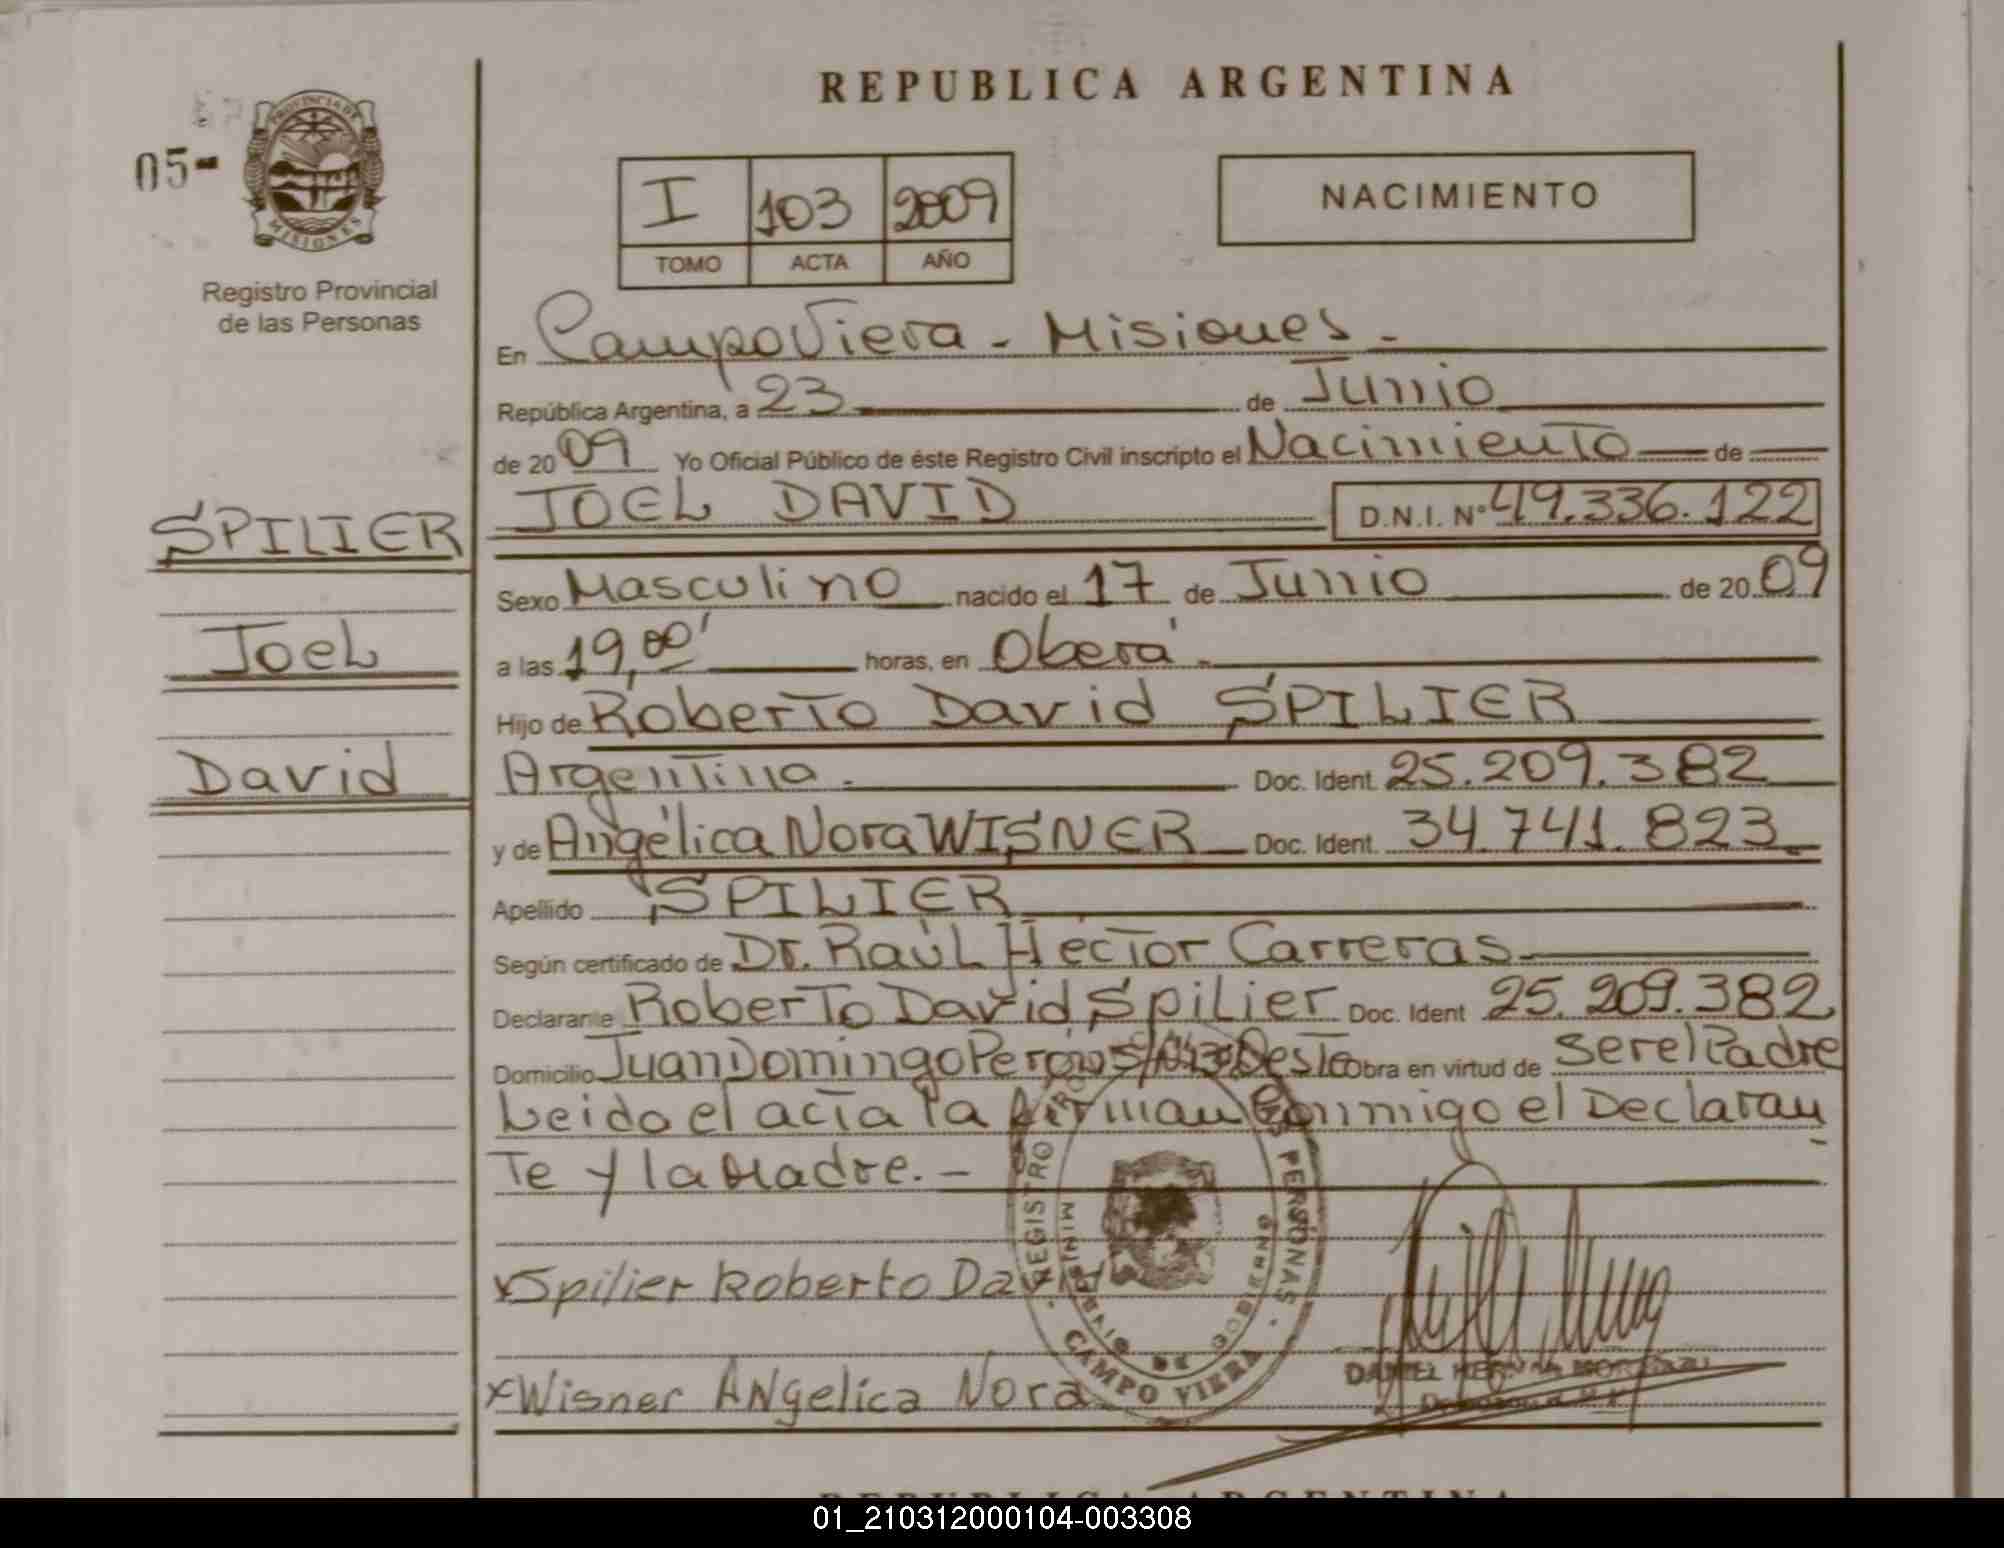 REPUBLICA ARGENTINA
05-
PROVINCIA DE
MISIONES
Registro Provincial
de las Personas
I 103 2009
TOMO ACTA AÑO
NACIMIENTO
En Campo Viera - Misiones -
República Argentina, a 23 de Junio
de 2009 Yo Oficial Público de éste Registro Civil inscripto el Nacimiento de
SPILIER
Joel
David
JOEL DAVID D.N.I. Nº 49.336.122
Sexo Masculino nacido el 17 de Junio de 2009
a las 19,00' horas, en Oberá.
Hijo de Roberto David SPILIER
Argentina. Doc. Ident. 25.209.382
y de Angélica Nora WISNER Doc. Ident. 34.741.823
Apellido SPILIER
Según certificado de Dr. Raúl Héctor Carreras
Declarante Roberto David Spilier Doc. Ident 25.209.382
Domicilio Juan Domingo Perón Obra en virtud de ser el Padre
Leido el acta la firman Conmigo el Declaran
Te y la Madre. -
xSpilier Roberto David
xWisner ANgelica Nora
REGISTRO PERSONAS
CAMPO VIERA
DANIEL
REPUBLICA ARGENTINA
01_210312000104-003308